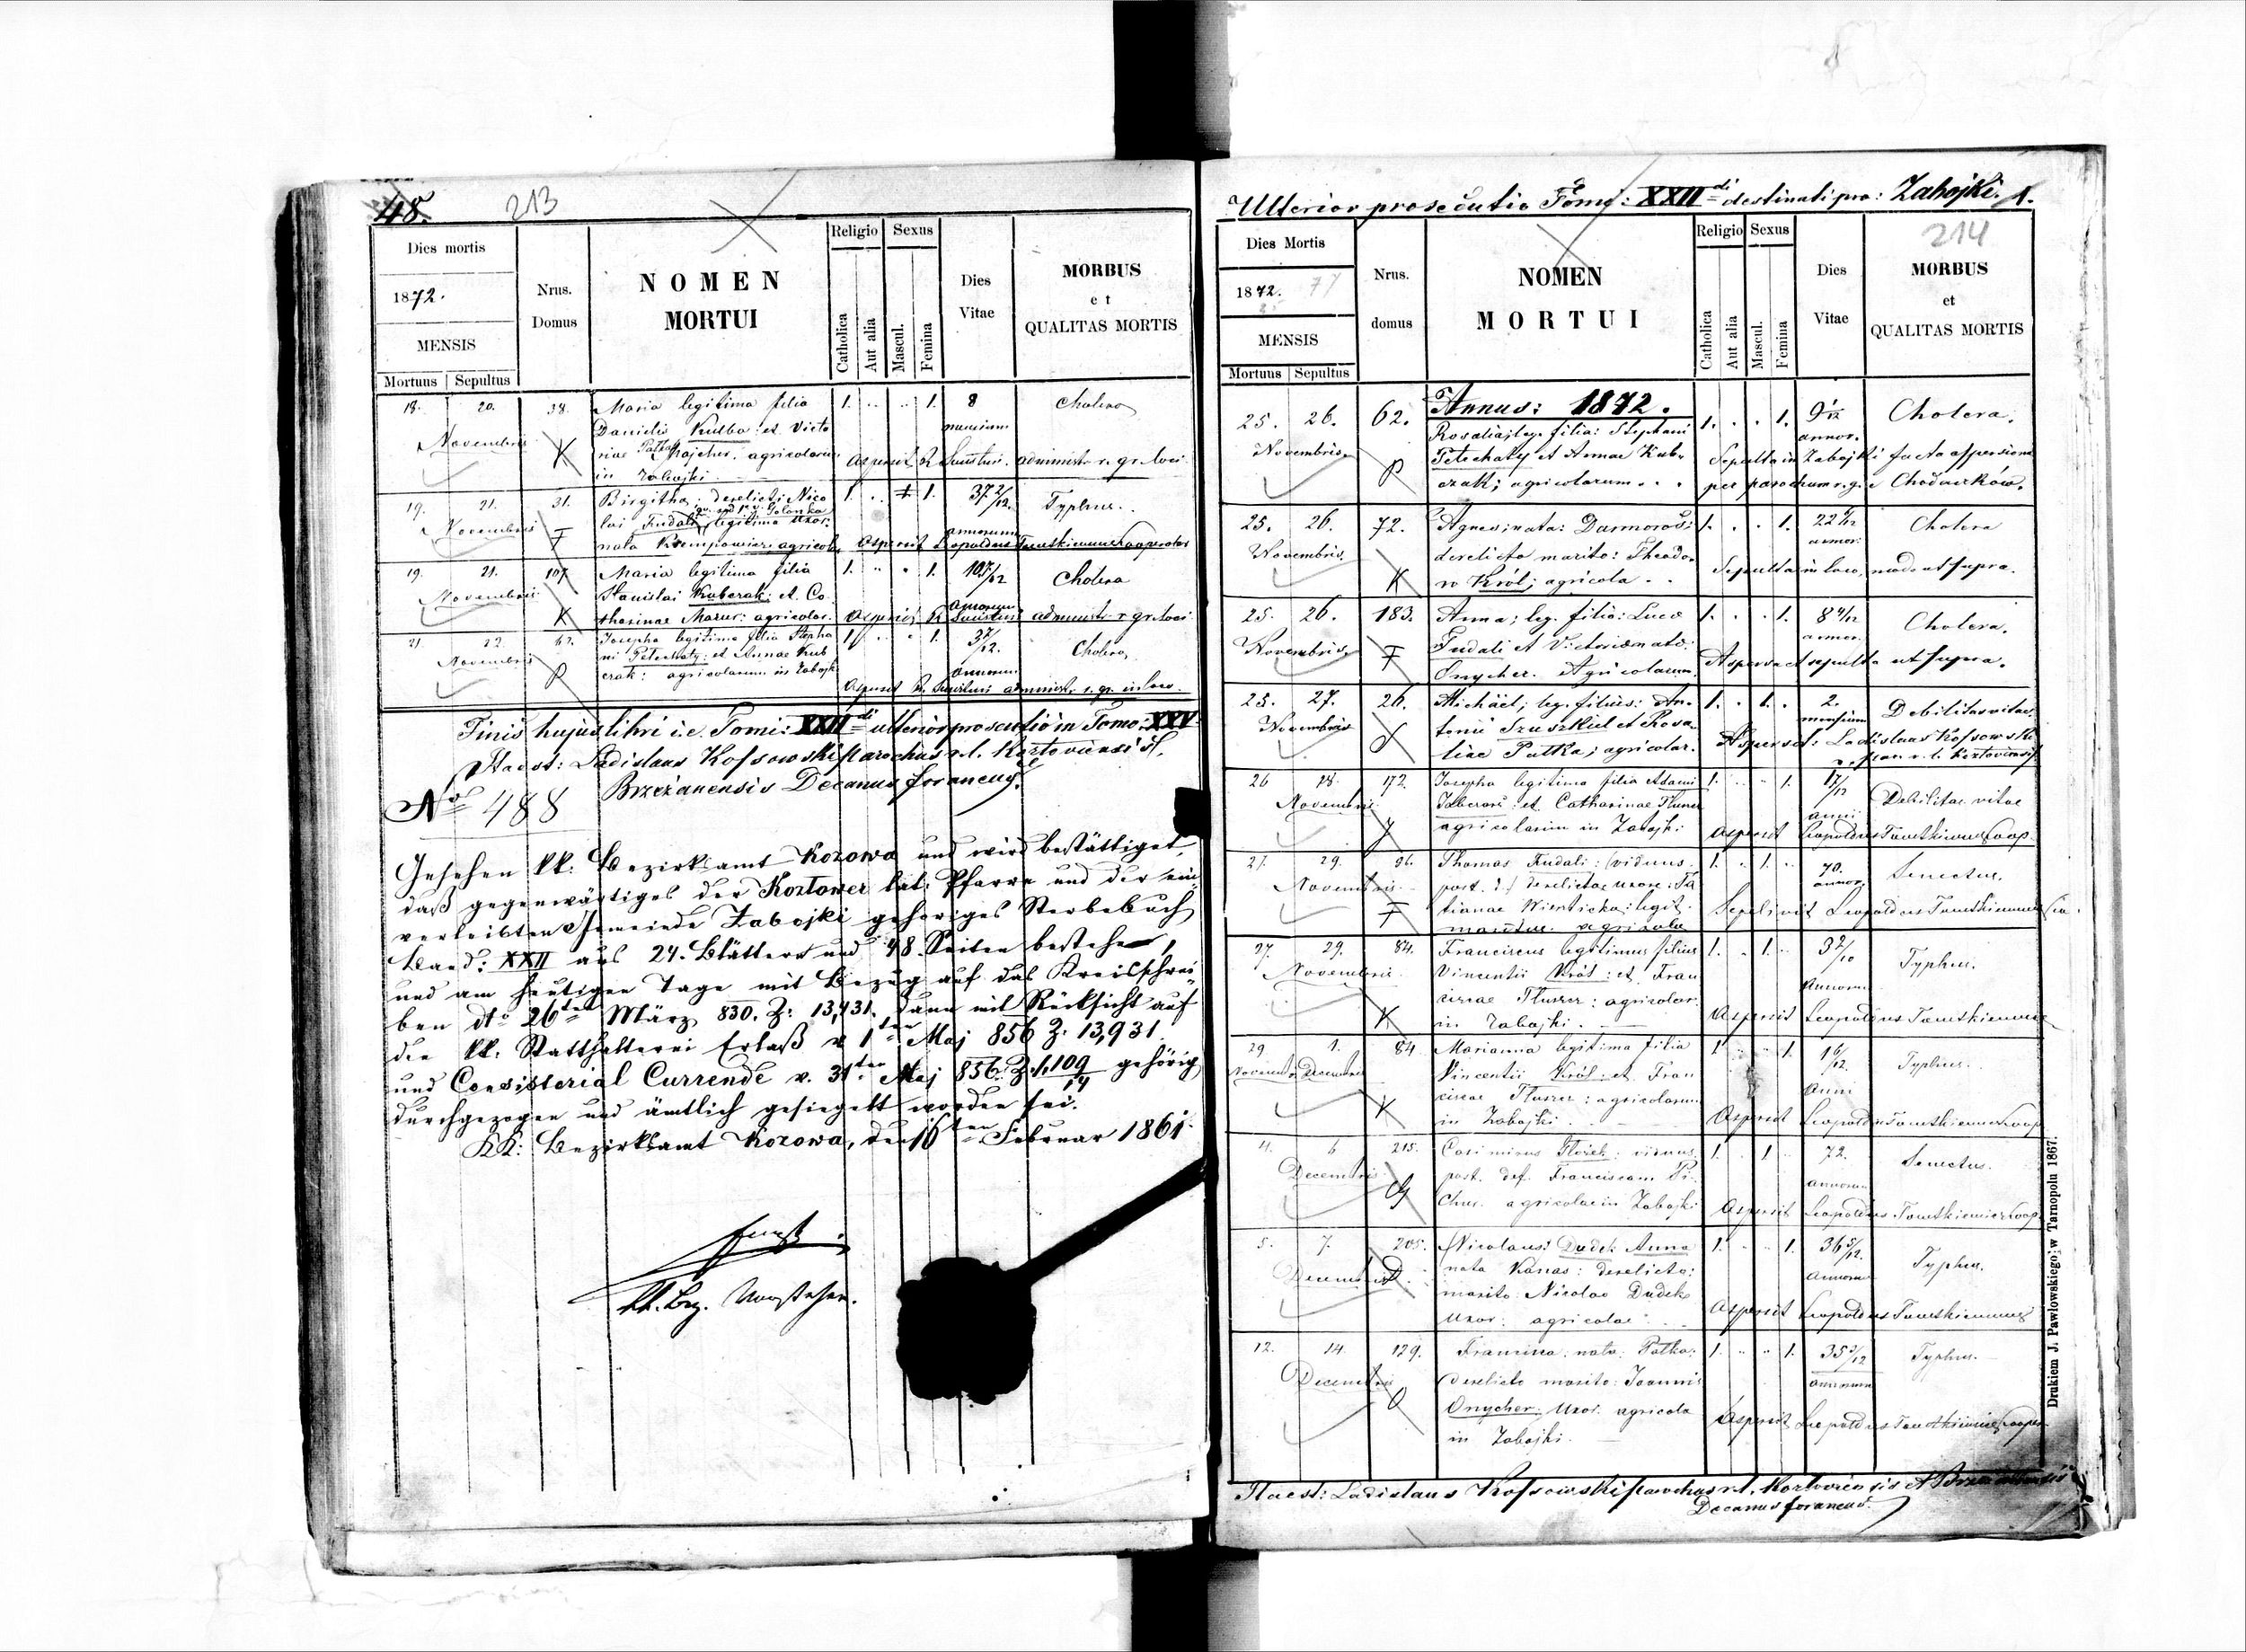 48. 213
Dies mortis
1872.
MENSIS
Mortuus Sepultus
Nrus. Domus
NOMEN MORTUI
Religio
Catholica Aut alia
Sexus
Mascul. Femina
Dies Vitae
MORBUS et QUALITAS MORTIS
18. 20. 38. Maria legitima filia 1. .. .. 1. 8 Cholera
Danielis Kulba: et Victo mensium
Novembris K riae Patka agricolarum Aspersit administr. r. gr. loci
in Zabojki
19. 21. 31. Birgitha: derelicti Nico 1. .. 1. 37 2/12. Typhus.
Novembris F lai Fudali legitima uxor. annorum
nata agricol. Aspersit Leopoldus Cooperator
19. 21. 107 Maria legitima filia 1. .. .. 1. Cholera
Novembris Stanislai Kuberak: et Ca
K tharinae Mazur: agricolar. Aspersit administr r. gr. loci
21 22. 62. Josepha legitima filia Stepha 1. .. .. 1. 3 Cholera,
Novembris ni Petechaty: et Annae Kub annorum
P czak: agricolarum in Zabojki
Aspersit administr. r. gr. in loco.
Finis hujus libri i.e. Tomi: XXII di ulterior prosecutio in Tomo: XXV
Ita est: Ladislaus Kossowski parochus r. l. Kozloviensis et,
Brzeżanensis Decanus foraneus.
No 488
Gesehen kk: Bezirksamt Kozowa und wird bestättiget,
daß gegenwärtiges der Kozlower lat: Pfarre und der ein
verleibten Gemeinde Zabojki gehöriges Sterbebuch
Band: XXII aus 24. Blättern und 48. Seiten bestehe,
und am heutigen Tage mit Bezug auf das Kreisschrei
ben dto 26ten März 830. Z: 13,431. dann mit Rücksicht auf
die kk. Statthalterei Erlaß v. 1ten Maj 856 Z. 13,931
und Consistorial Currende v. 31ten Maj 856. Z. 1,109/14 gehörig
durchgezogen und ämtlich gesiegelt worden sei.
KK: Bezirksamt Kozowa, den 16ten Februar 1861.
kk. Bez. Vorsteher.
Ulterior prosecutio Tomi: XXII di destinati pro: Zabojki. 1.
214
Dies Mortis
1872. 77
MENSIS
Mortuus Sepultus
Nrus. domus
NOMEN MORTUI
Religio
Catholica Aut alia
Sexus
Mascul. Femina
Dies Vitae
MORBUS et QUALITAS MORTIS
Annus: 1872.
25. 26. 62. Rosalia; leg. filia: Stephani 1. . . 1. 9 Cholera.
Novembris. Petechaty et Annae Kub annor.
P czak; agricolarum . . Sepulta in Zabojki facta aspersione
per parochum r. g. e Chodaczków.
25. 26. 72. Agnes; nata: Darmoroś: 1. . . 1. 22 Cholera
Novembris. derelicto marito: Theodo annor:
K ro Król; agricola . . Sepulta in loco, modo ut supra.
25. 26. 183. Anna; leg. filia: Lucae 1. . . 1. 8 Cholera.
Novembris. F Fudali et Victoriae natae: annor.
Onycher. Agricolarum. Aspersa et sepulta ut supra.
25. 27. 26. Michäel; leg. filius: An 1. . 1. . 2. Debilitas vitae.
Novembris tonii Szuszkiel et Rosa mensium
liae Patka; agricolar. Aspersit: Ladislaus Kossowski
r. l. Kozloviensis
26 28. 172. Josepha legitima filia Adami 1. .. .. 1. Debilitas vitae
Novembris : et Catharinae anni
agricolarum in Zabojki Aspersit Leopoldus Coop.
27. 29. 96. Thomas Fudali: (viduus 1. .. 1. .. 70. Senectus.
Novembris post. derelictae uxore: Ta annor.
F tianae legit. Sepelivit Leopoldus
maritus. agricola
27. 29. 84. Franciscus legitimus filius 1. .. 1. .. 3 Typhus.
Novembris Vincentii Król: et Fran annorum
ciscae Tluszcz: agricolar. Aspersit Leopoldus
K in Zabojki.
29 1. 84 Marianna legitima filia 1. .. .. 1. 1 6/12. Typhus.
Novembr. Decembris Vincentii Król: et Fran Anni
ciscae Tluszcz: agricolarum
K in Zabojki Aspersit Leopoldus Coop
4. 6 215. Casimirus : viduus 1. .. 1. .. 72. Senectus.
Decembris post. def. Franciscam annorum
G agricolae in Zabojki Aspersit Leopoldus Coop
5. 7. 205. Nicolaus: Dudek Anna 1. .. .. 1. 36 5/12. Typhus.
Decembris D nata Kanas: derelicto: annorum
marito: Nicolao Dudek Aspersit Leopoldus
uxor: agricolae
12. 14. 129. Francisca: nata: Patka: 1. .. .. 1. 35 Typhus.
Decembris derelicto marito: Joannis annorum
O Onycher. uxor. agricola Aspersit Leopoldus Cooper.
in Zabojki.
Ita est: Ladislaus Kossowski parochus r. l. Kozloviensis et
Decanus foraneus.
Drukiem J. Pawłowskiego w Tarnopolu 1867.